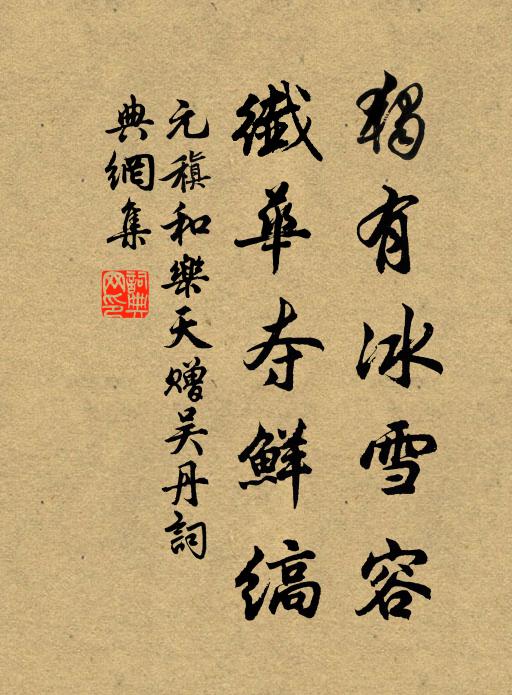 獨有冰雪容
纖華夺鮮縞
元稹和樂天赠吴丹詞
典網集
詞典网印